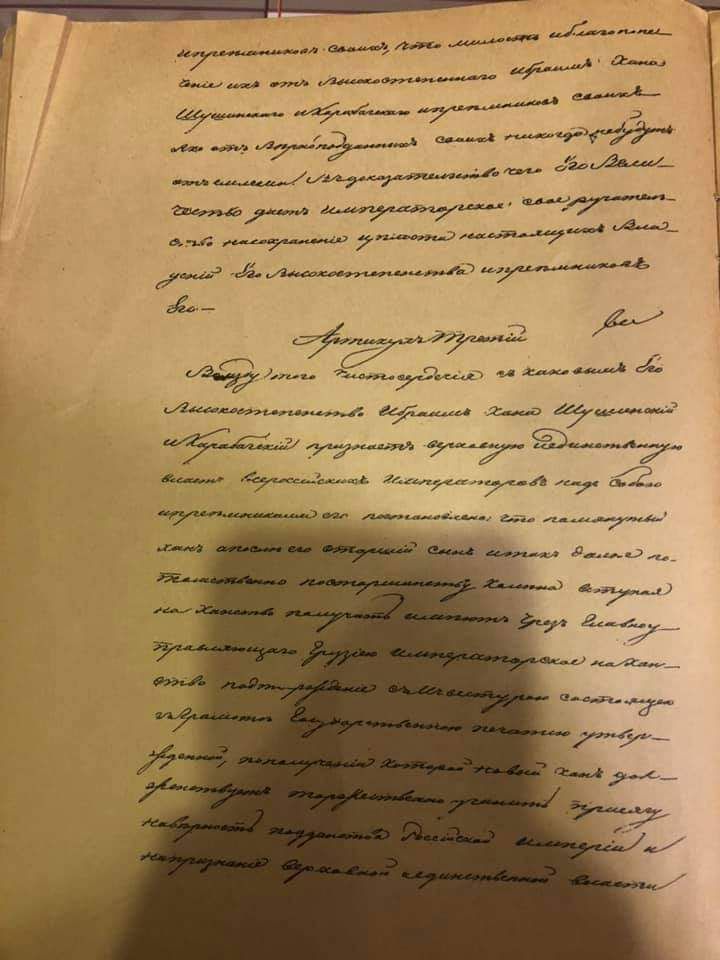 и преемников своих, что милость и благопопе-
чение их от Высокостепеннаго Ибраим Хана
Шушинскаго и Карабагскаго и преемников своих
яко от верноподданных своих никогда небудут
отъемлемы. В доказательство чего Его Вели-
чество дает Императорское свое ручатель-
ство на сохранение целости настоящих Вла-
дений Его Высокостепенства и преемников
Его.—
Артикул Третий
Во мзду того чистосердечия с каковым Его
Высокостепенство Ибраим Хан Шушинский
и Карабагский признает верховную и единственную
власть Всероссийских Императоров над собою
и преемниками его постановлено: что помянутый
хан а после его старший сын и так далее по-
томственно по старшинству колена вступая
на Ханство получать имеют чрез Главноу-
правляющаго Грузиею Императорское на Хан-
ство подтверждение с инвеститурою состоящею
в грамоте Государственною печатию утвер-
жденной, по получении которой новый Хан дол-
женствует торжественно учинить присягу
на верность подданства Российской Империи и
на признание верховной и единственной власти